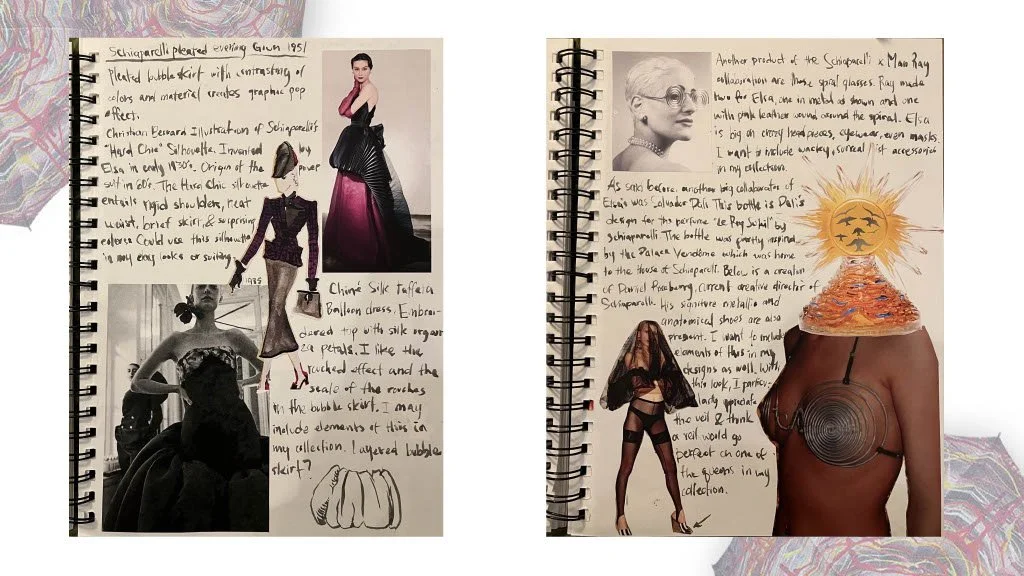 Schiaparelli pleated evening Gown 1951
Pleated bubble skirt with contrasting of
colors and material creates graphic pop
effect.
Christian Berard Illustration of Schiaparelli's
"Hard Chic" Silhouette. Invented by
Elsa in early 1930's. Origin of the power
suit in 80's. The Hard Chic silhouette
entails rigid shoulders, neat
waist, brief skirt, & surprising
colors. Could use this silhouette
in my day looks or suiting.
1935
Chiné Silk taffeta
Balloon dress. Embroi-
dered top with silk organ
za petals. I like the
ruched effect and the
scale of the rouches
in the bubble skirt. I may
include elements of this in
my collection. Layered bubble
skirt?
Another product of the Schiaparelli x Man Ray
collaboration are these spiral glasses. Ray made
two for Elsa, one in metal as shown and one
with pink leather wound around the spiral. Elsa
is big on crazy headpieces, eyewear, even masks
I want to include wacky, surrealist accessories
in my collection.
As said before, another big collaborator of
Elsa's was Salvador Dali. This bottle is Dali's
design for the perfume "Le Roy Soleil" by
Schiaparelli. The bottle was partly inspired
by the Palace Vendôme which was home
to the House of Schiaparelli. Below is a creation
of Daniel Roseberry, current creative director of
Schiaparelli. His signature metallic and
anatomical shoes are also
present. I want to include
elements of this in my
designs as well. With
this look, I partic-
larly appreciate
the veil & think
a veil would go
perfect on one of
the queens in my
collection.